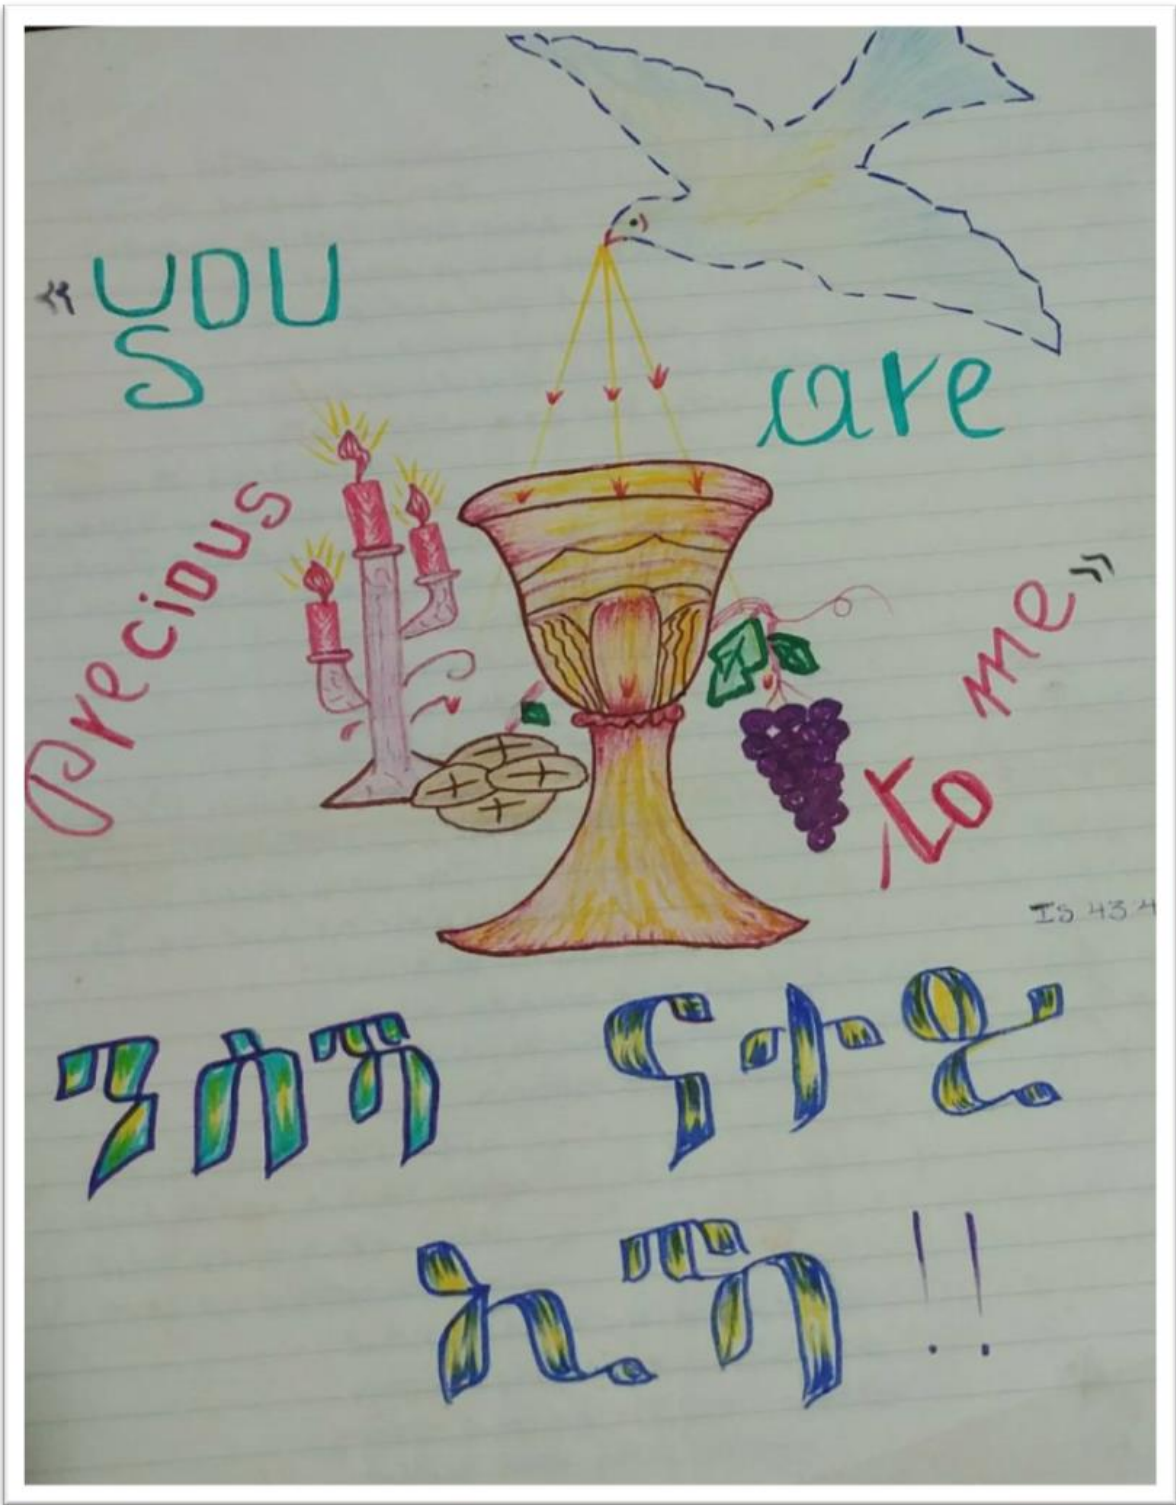 « you are
Precious to me »
IS 43:4
ንስኻ ናተይ
ኢኻ !!